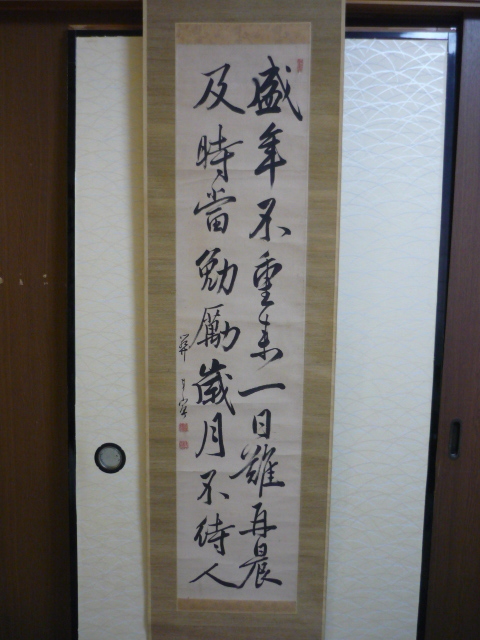 盛年不重来一日難再晨
及時當勉勵歳月不待人